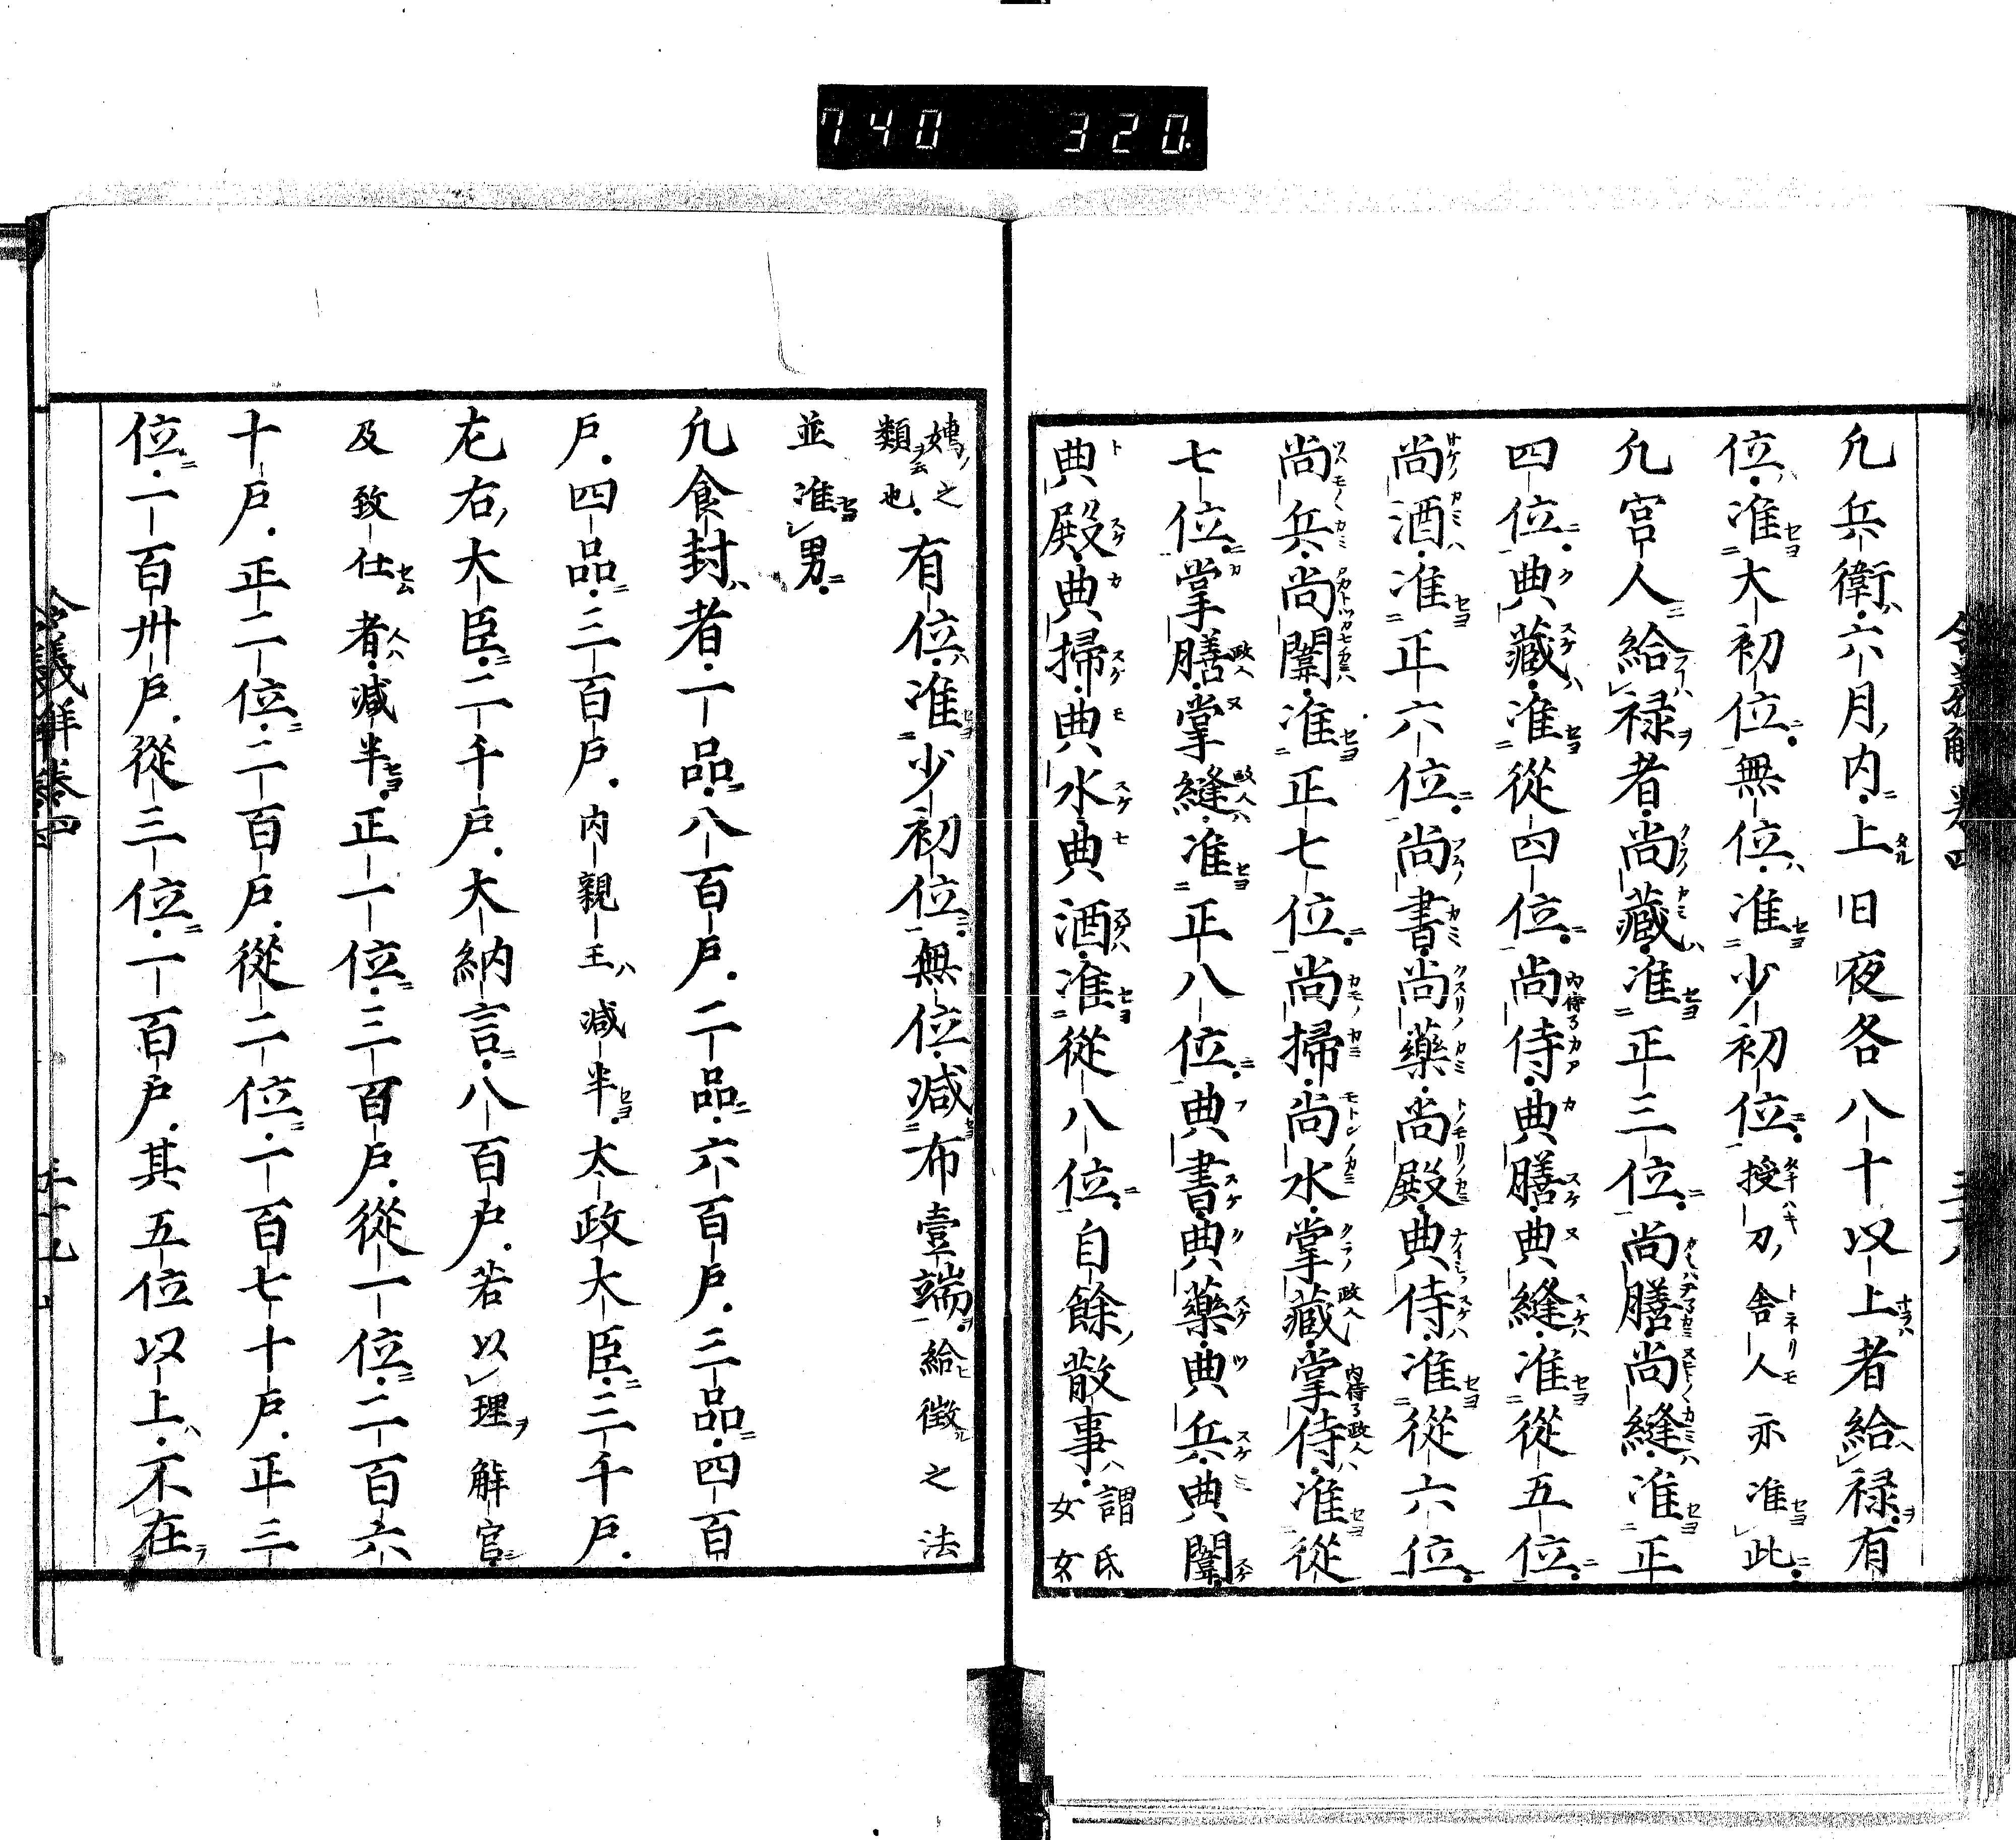 740 320
凢兵衛六月内上日夜各八十以上者給禄有
位准大初位無位准少初位授刀舎人亦准此
凢宮人給禄者尚藏准正三位尚膳尚縫准正
四位典藏准從四位尚侍典膳典縫准從五位
尚酒准正六位尚書尚藥尚殿典侍准從六位
尚兵尚闈准正七位尚掃尚水掌藏掌侍准從
七位掌膳掌縫准正八位典書典藥典兵典闈
典殿典掃典水典酒准從八位自餘散事謂氏
女女
嬬之
類也有位准少初位無位减布壹端給徴之法
並准男
凢食封者一品八百戸二品六百戸三品四百
戸四品三百戸内親王减半太政大臣三千戸
左右大臣二千戸大納言八百戸若以理解官
及致仕者减半正一位三百戸從一位二百六
十戸正二位二百戸從二位一百七十戸正三
位一百卅戸從三位一百戸其五位以上不在
令義解卷四